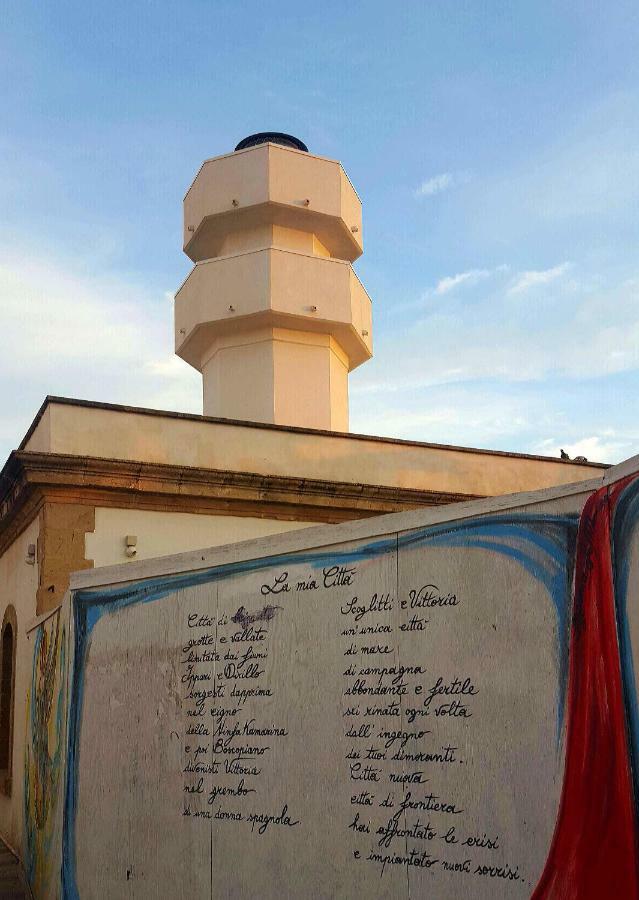 La mia Città
Città di
grotte e vallate
limitata dai fiumi
Ippari e Dirillo
sorgesti dapprima
nel cigno
della Ninfa Kamarina
e poi Boscopiano
divenisti Vittoria
nel grembo
di una donna spagnola.
Scoglitti e Vittoria
un'unica città
di mare
di campagna
abbondante e fertile
sei rinata ogni volta
dall'ingegno
dei tuoi dimoranti.
Città nuova
città di frontiera
hai affrontato le crisi
e impiantato nuovi sorrisi.